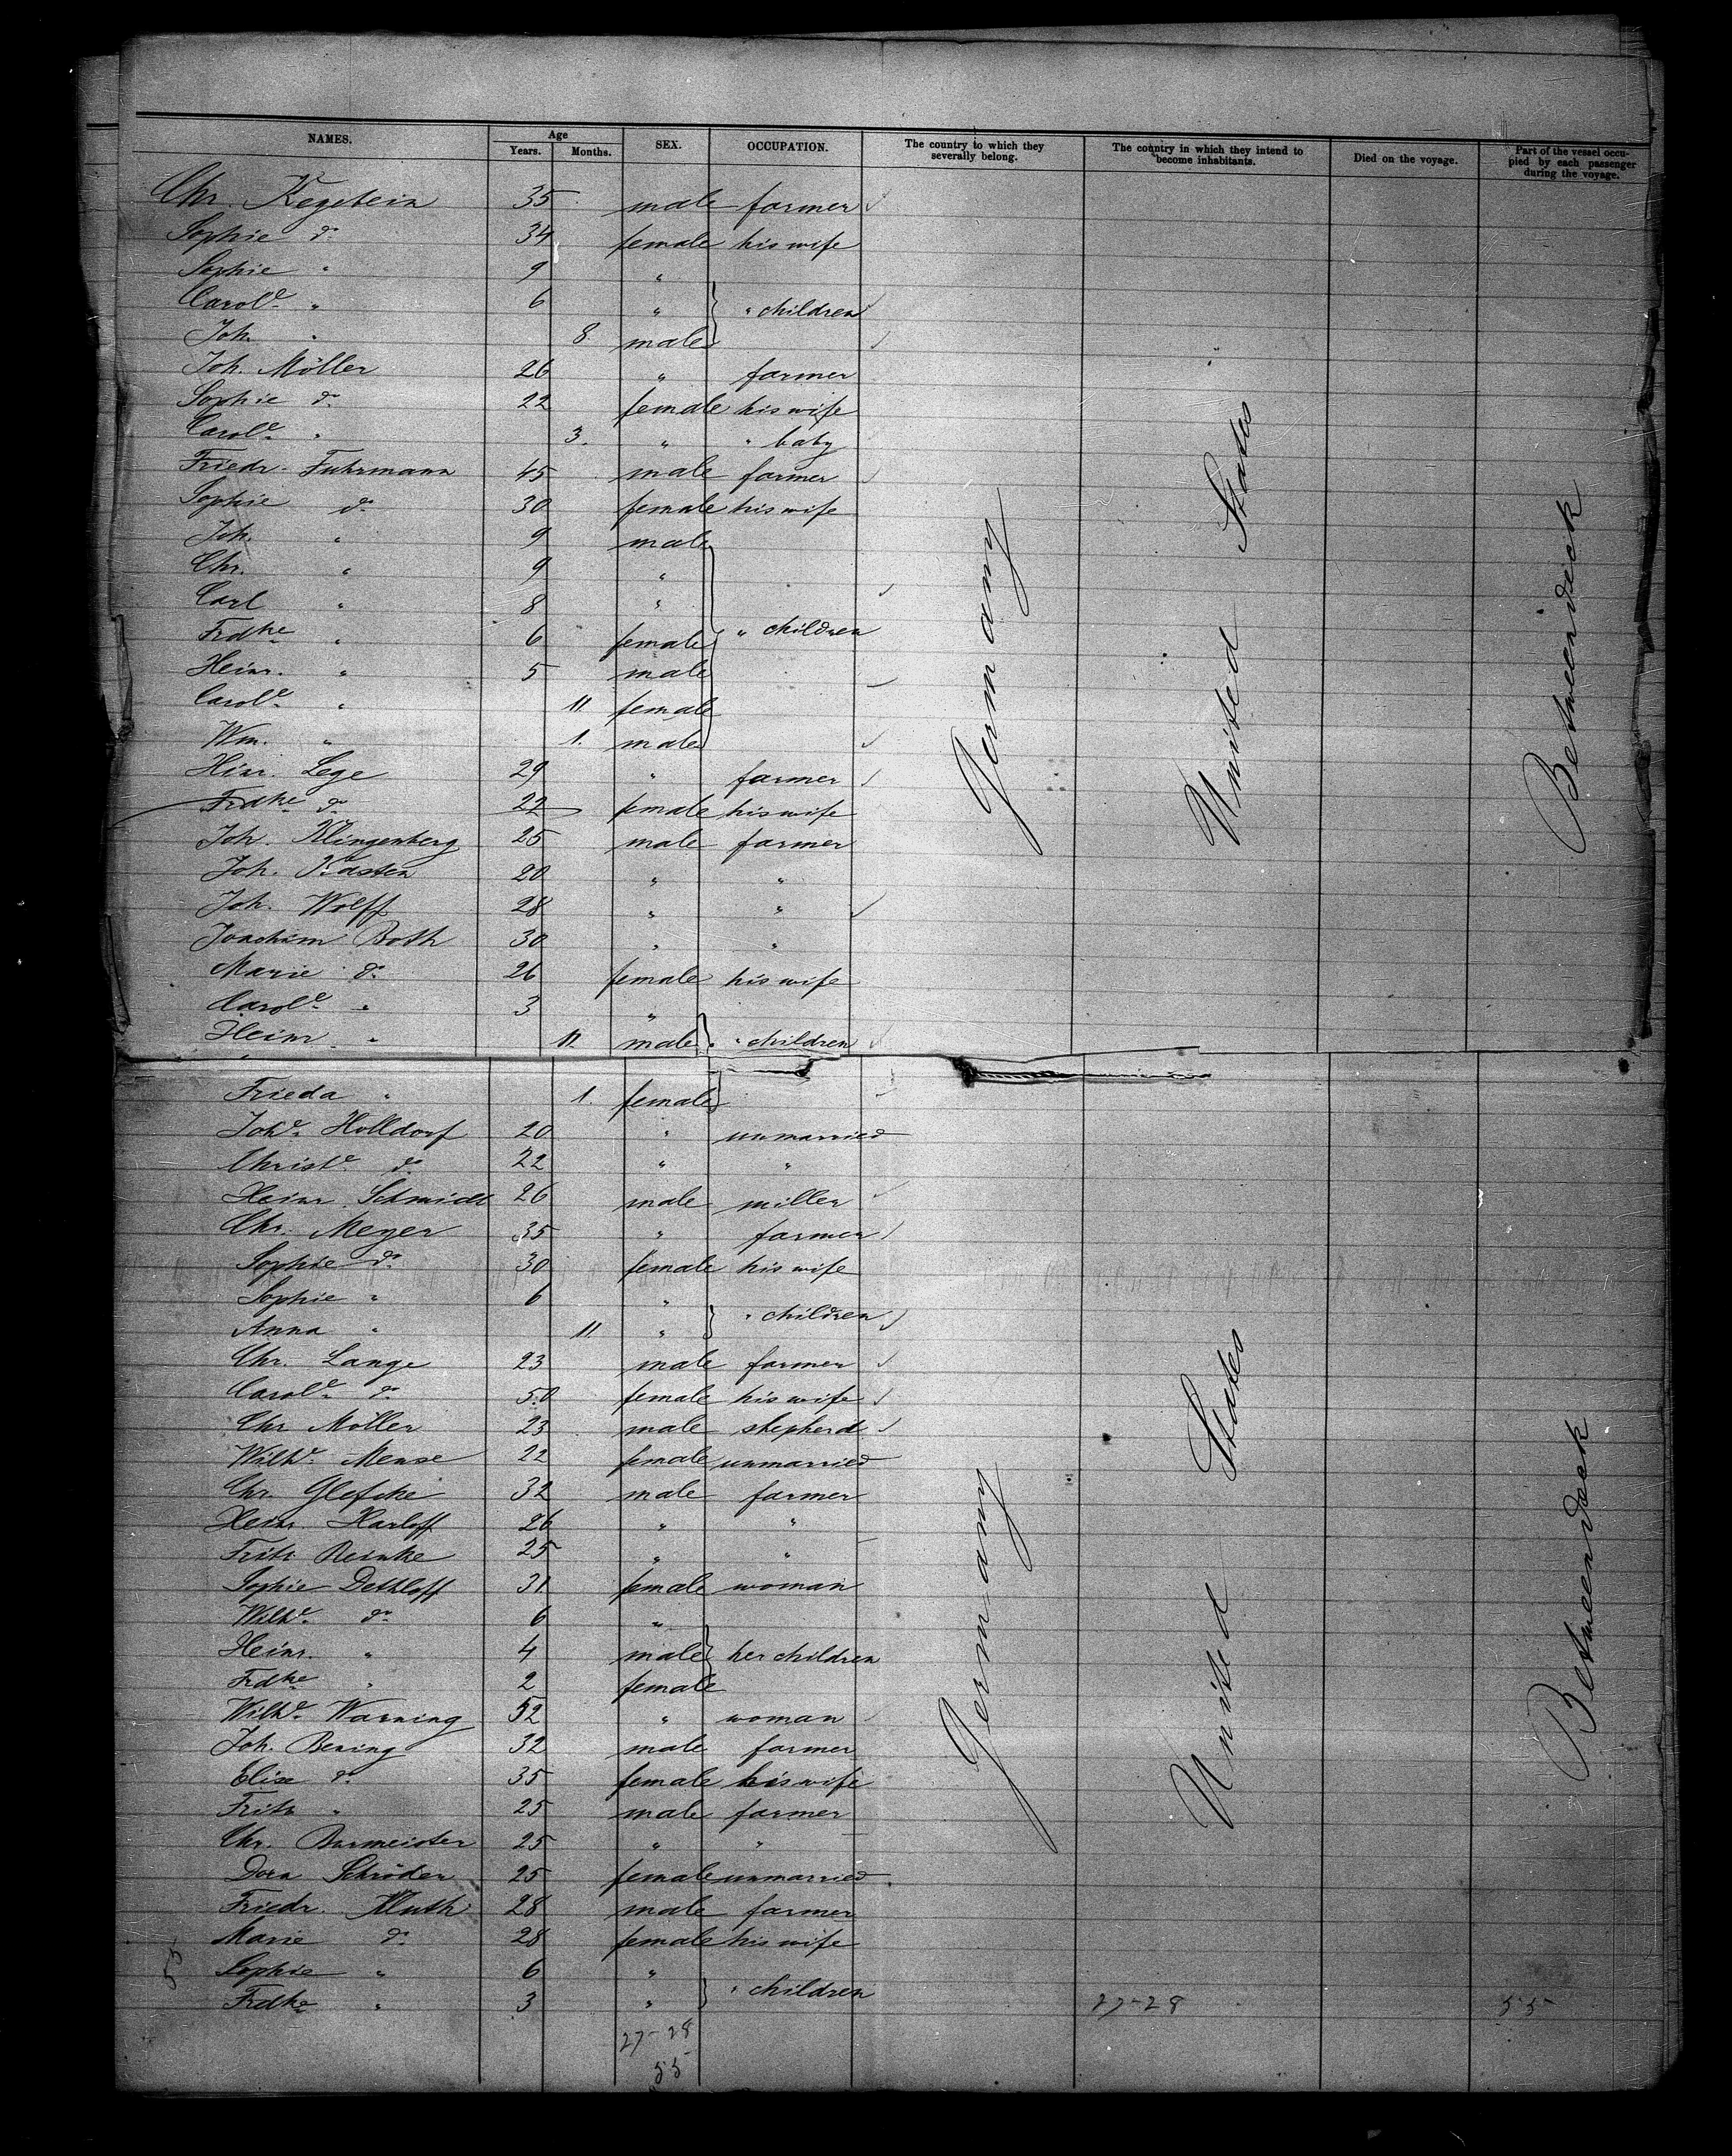 NAMES. Age Years. Months. SEX. OCCUPATION. The country to which they severally belong. The country in which they intend to become inhabitants. Died on the voyage. Part of the vessel occupied by each passenger during the voyage.
Chr. Kegebein 35 male farmer
Sophie do 34 female his wife
Sophie " 9 "
Carole " 6 " " children
Joh. " 8 male
Joh. Möller 26 " farmer
Sophie do 22 female his wife
Carole " 3. " " baby
Friedr. Fuhrmann 45 male farmer
Sophie do 30 female his wife
Joh. " 9 male
Chr. " 9 "
Carl " 8 "
Frdke " 6 female " children
Heinr. " 5 male
Carole " 11 female
Wm. " 1. male
Hinr. Lege 29 " farmer
Frdke do 22 female his wife
Joh. Klingenberg 25 male farmer
Joh. Kasten 20 " "
Joh. Wolff 28 " "
Joachim Both 30 " "
Marie do 26 female his wife
Carole " 3 "
Heinr. " 11. male " children
Frieda " 1. female
Johe Holldorf 20 " unmarried
Christe do 22 " "
Heinr. Schmidt 26 male miller
Chr. Meyer 35 " farmer
Sophie do 30 female his wife
Sophie " 6 " " children
Anna " 11. "
Chr. Lange 23 male farmer
Carole do 50 female his wife
Chr Möller 23 male shepherd
Wilhe Mense 22 female unmarried
Chr. Glefcke 32 male farmer
Heinr. Harloff 26 " "
Fritz Reinke 25 " "
Sophie Dethloff 31 female woman
Wilhe do 6 "
Heinr. " 4 male her children
Frdke " 2 female
Wilhe Warning 52 " woman
Joh. Bening 32 male farmer
Elise do 35 female his wife
Fritz " 25 male farmer
Chr. Burmeister 25 " "
Dora Schröder 25 female unmarried
Friedr. Kluth 28 male farmer
Marie do 28 female his wife
Sophie " 6 "
Frdke " 3 " " children
Germany
United States
Betweendeck
Germany
United States
Betweendeck
55
27-28 55
27-28
55